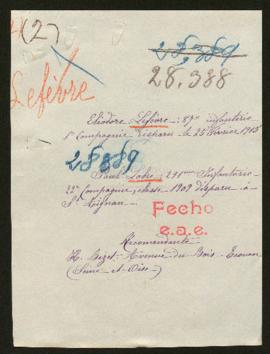 (2)
28,889
28,388
Lefèvre
Eliodore Lefèvre : 89e infanterie
Compagnie disparu le 25 Février 1915
28889
Paul : 291eme Infanterie
22e Compagnie, classe 1909 disparu à
St Aignan
Fecho
e.a.e.
Recomandante
H. Bizet Avenue du Bois Ecouen
(Seine et Oise)